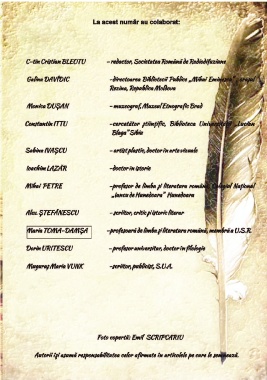 La acest număr au colaborat:
C-tin Cristian BLEOTU – redactor, Societatea Română de Radiodifuziune
Galina DAVIDIC – directoarea Bibliotecii Publice „Mihai Eminescu”, orașul
Rezina, Republica Moldova
Monica DUȘAN – muzeograf, Muzeul Etnografic Brad
Constantin ITTU – cercetător științific, Biblioteca Universității „Lucian
Blaga” Sibiu
Sabina IVAȘCU – artist plastic, doctor în arte vizuale
Ioachim LAZĂR – doctor în istorie
Mihai PETRE – profesor de limba și literatura română, Colegiul Național
„Iancu de Hunedoara” Hunedoara
Nae. ȘTEFĂNESCU – scriitor, critic și istoric literar
Maria TOMA-DAMȘA – profesoară de limba și literatura română, membră a U.S.R.
Dorin URITESCU – profesor universitar, doctor în filologie
Muguraș Maria VUNK – scriitor, publicist, S.U.A.
Foto copertă: Emil SCRIPCARIU
Autorii își asumă responsabilitatea celor afirmate în articolele pe care le semnează.